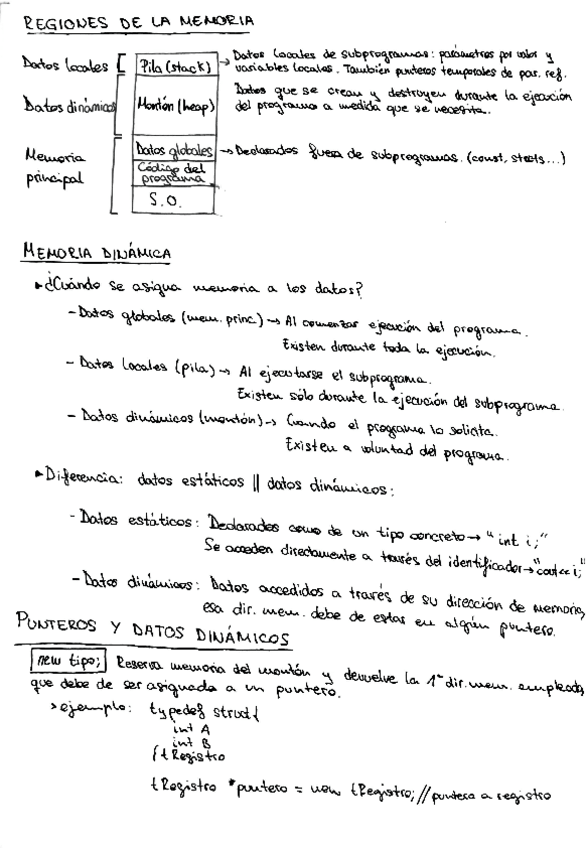 REGIONES DE LA MEMORIA
Datos locales [ Pila (stack) → Datos locales de subprogramas: parámetros por valor y
variables locales. También punteros temporales de pas. ref.
Datos dinámicos Montón (heap) Datos que se crean y destruyen durante la ejecución
del programa a medida que se necesita.
Memoria principal Datos globales → Declarados fuera de subprogramas. (const, structs...)
Código del programa
S.O.
MEMORIA DINÁMICA
▸ ¿Cuándo se asigna memoria a los datos?
- Datos globales (mem. princ.) → Al comenzar ejecución del programa.
Existen durante toda la ejecución.
- Datos locales (pila) → Al ejecutarse el subprograma.
Existen sólo durante la ejecución del subprograma.
- Datos dinámicos (montón) → Cuando el programa lo solicita.
Existen a voluntad del programa.
▸ Diferencia: datos estáticos || datos dinámicos:
- Datos estáticos: Declarados como de un tipo concreto → "int i;"
Se acceden directamente a través del identificador → "cout<<i;
- Datos dinámicos: Datos accedidos a través de su dirección de memoria,
esa dir. mem. debe de estar en algún puntero.
PUNTEROS Y DATOS DINÁMICOS
new tipo; Reserva memoria del montón y devuelve la 1ª dir. mem. empleada,
que debe de ser asignada a un puntero.
> ejemplo: typedef struct{
int A
int B
{tRegistro
tRegistro *puntero = new tRegistro; // puntero a registro